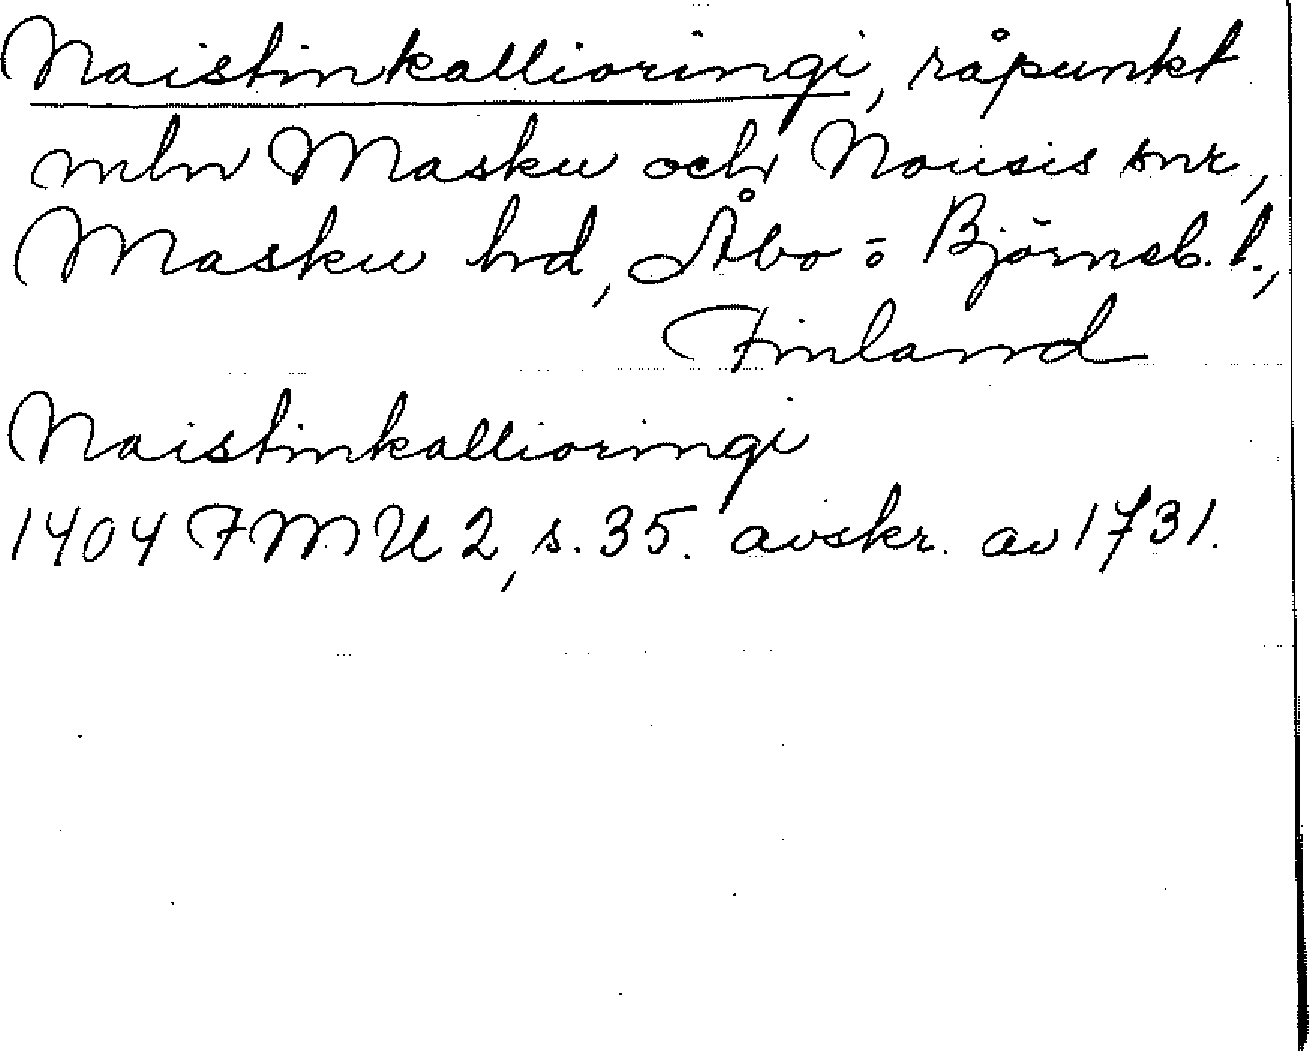 Naistinkallioringi, råpunkt
mln Masku och Nousis snr,
Masku hd, Åbo = Björneb. l.,
Finland
Naistinkallioringi
1404 FMU 2, s. 35. avskr. av 1731.